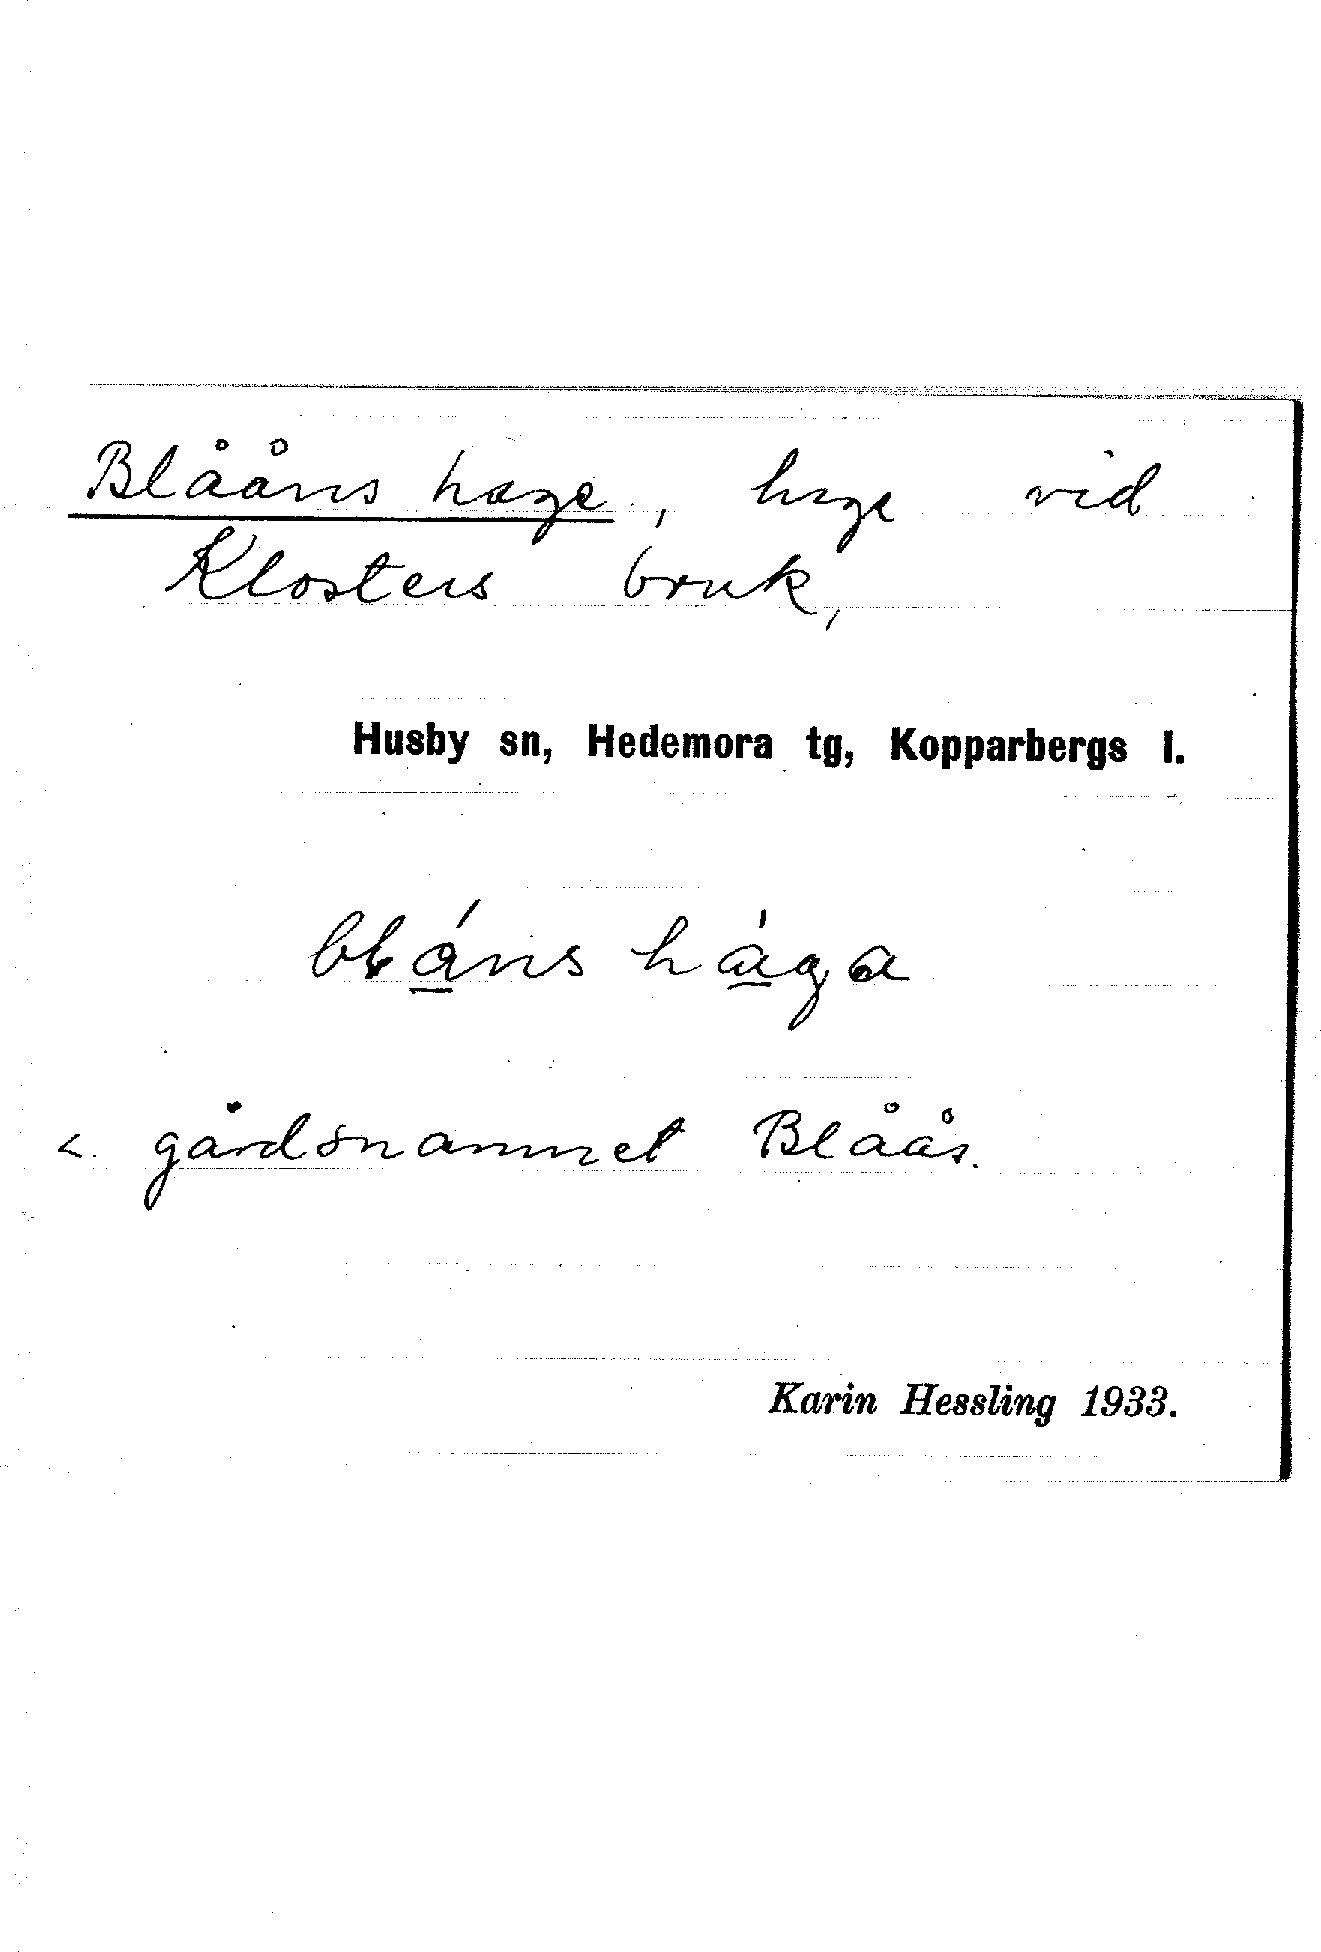 Blååns hage, hage vid
Klosters bruk,
Husby sn, Hedemora tg, Kopparbergs l.
blåns håga
< gårdsnamnet Blåås.
Karin Hessling 1933.